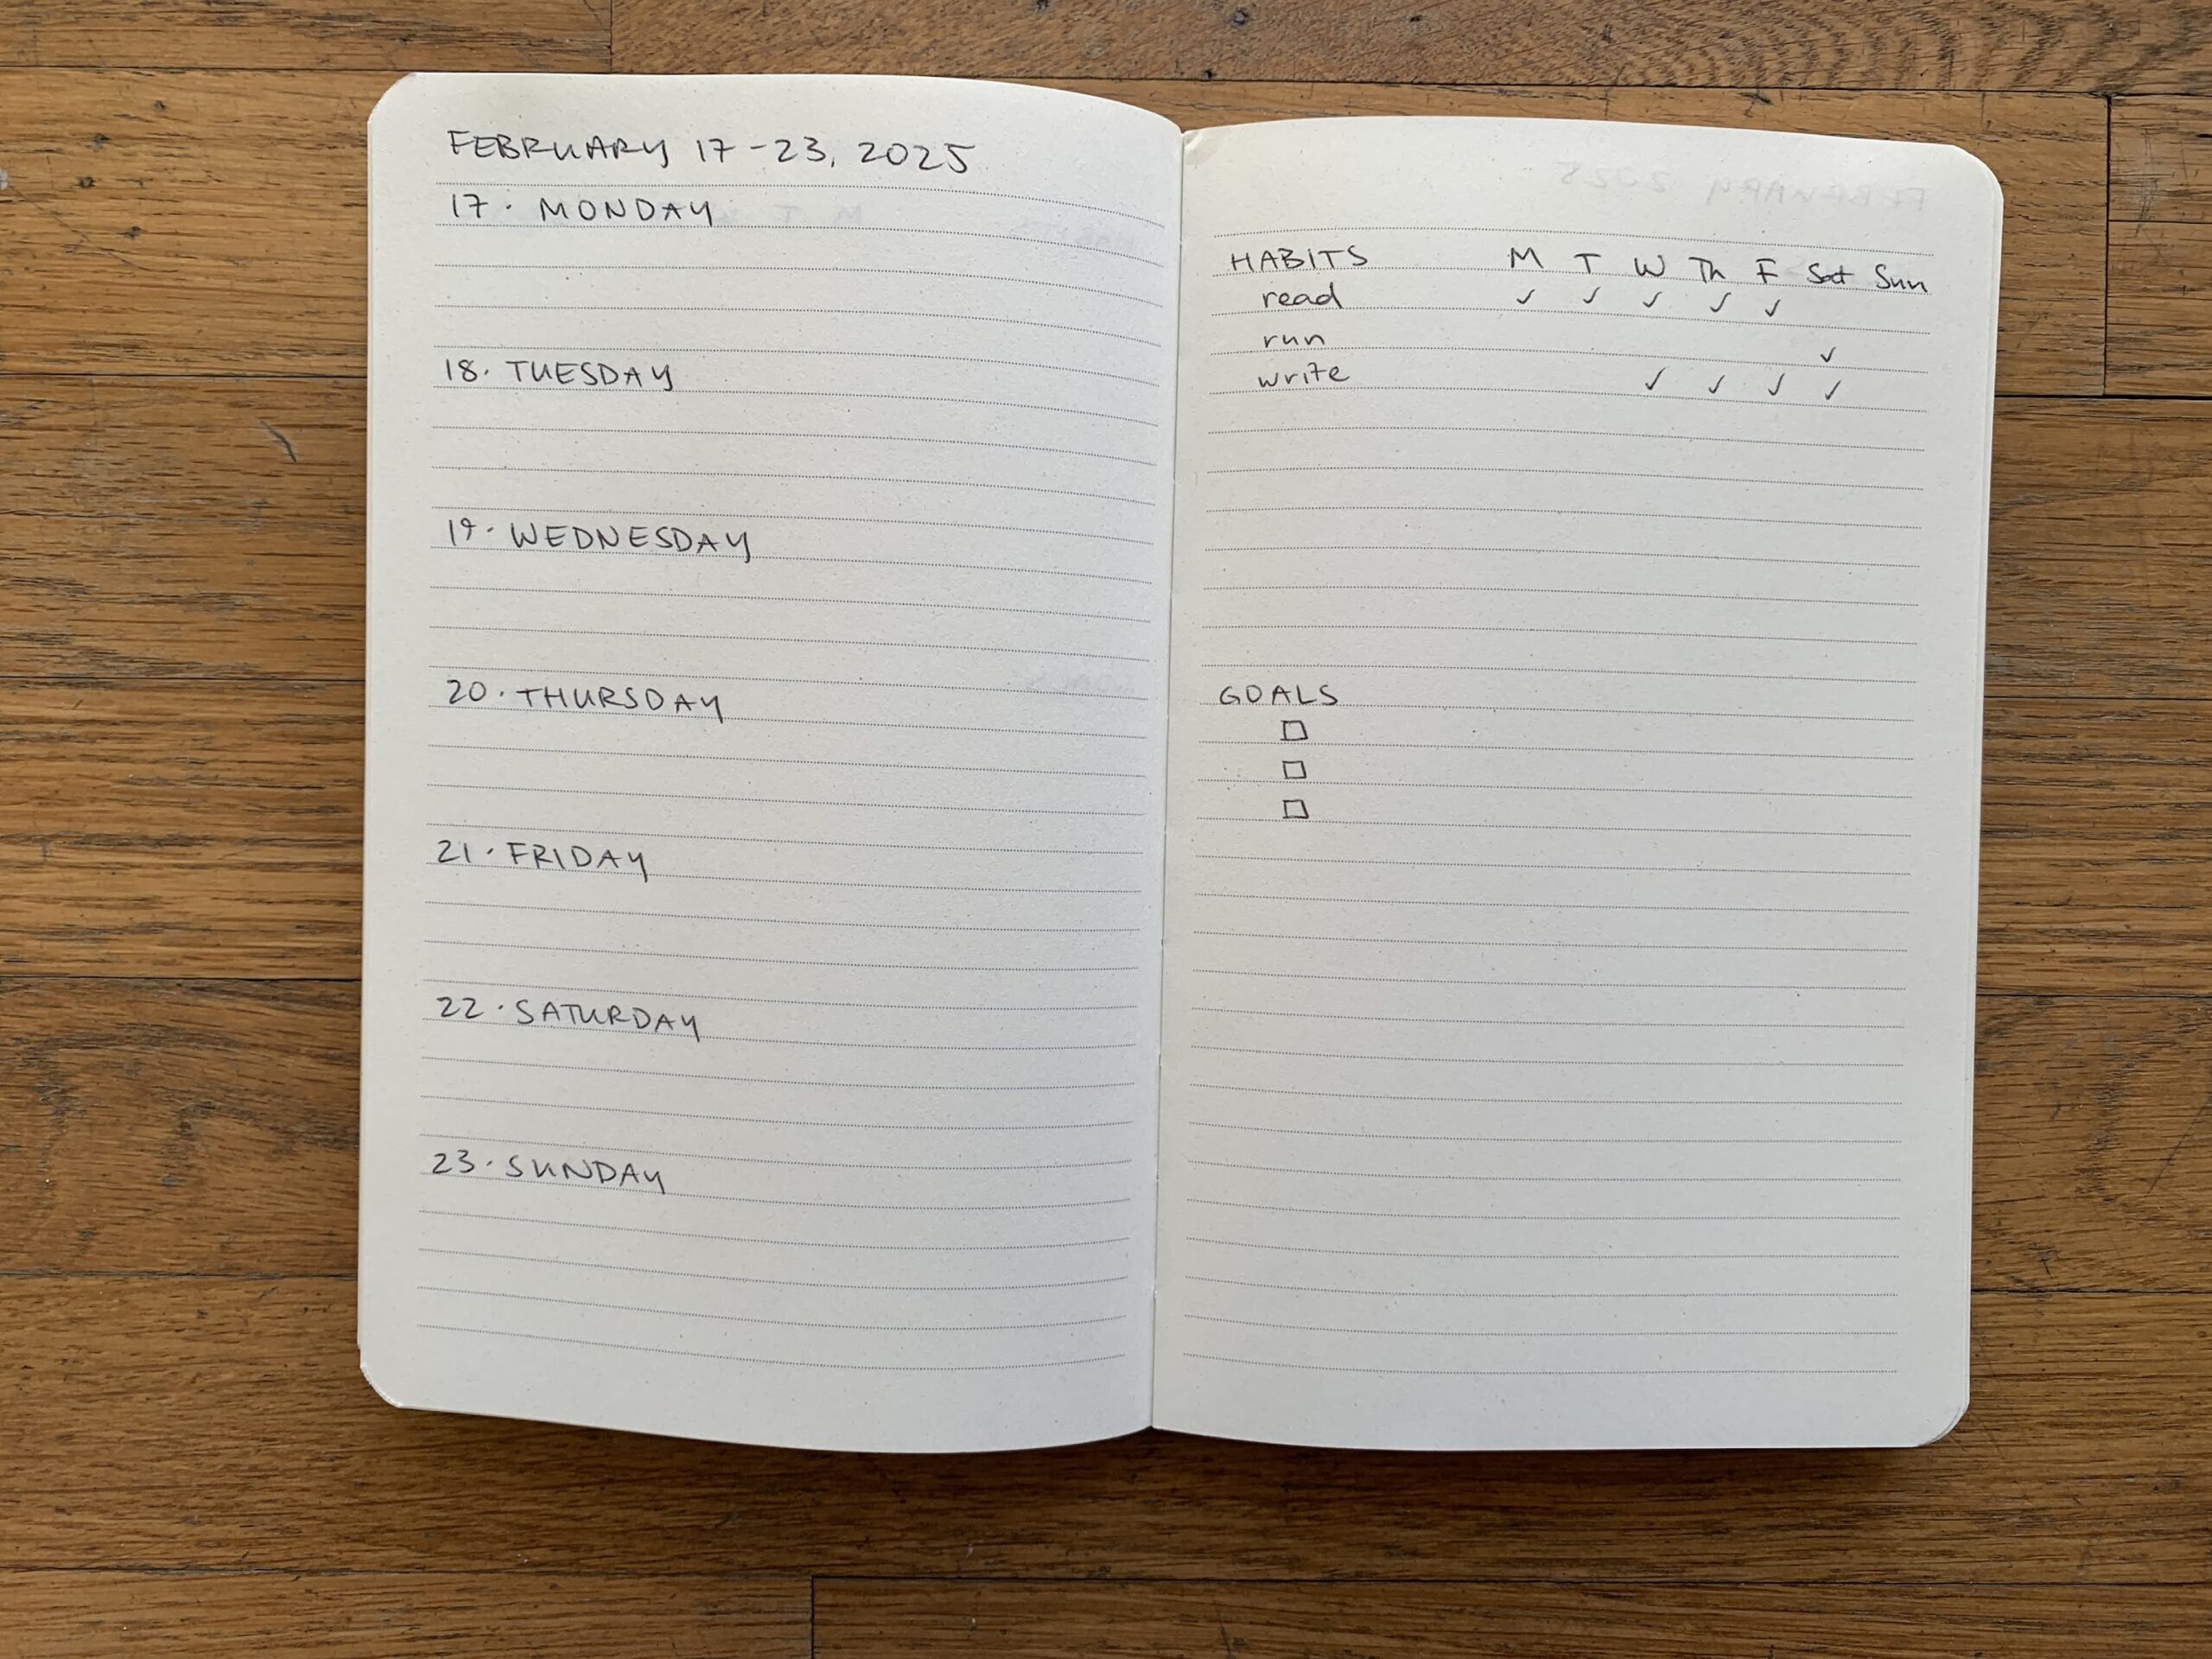 FEBRUARY 17-23, 2025
17. MONDAY
18. TUESDAY
19. WEDNESDAY
20. THURSDAY
21. FRIDAY
22. SATURDAY
23. SUNDAY
FEBRUARY 2025
HABITS M T W Th F Sat Sun
read ✓ ✓ ✓ ✓ ✓
run ✓
write ✓ ✓ ✓ ✓
GOALS
☐
☐
☐